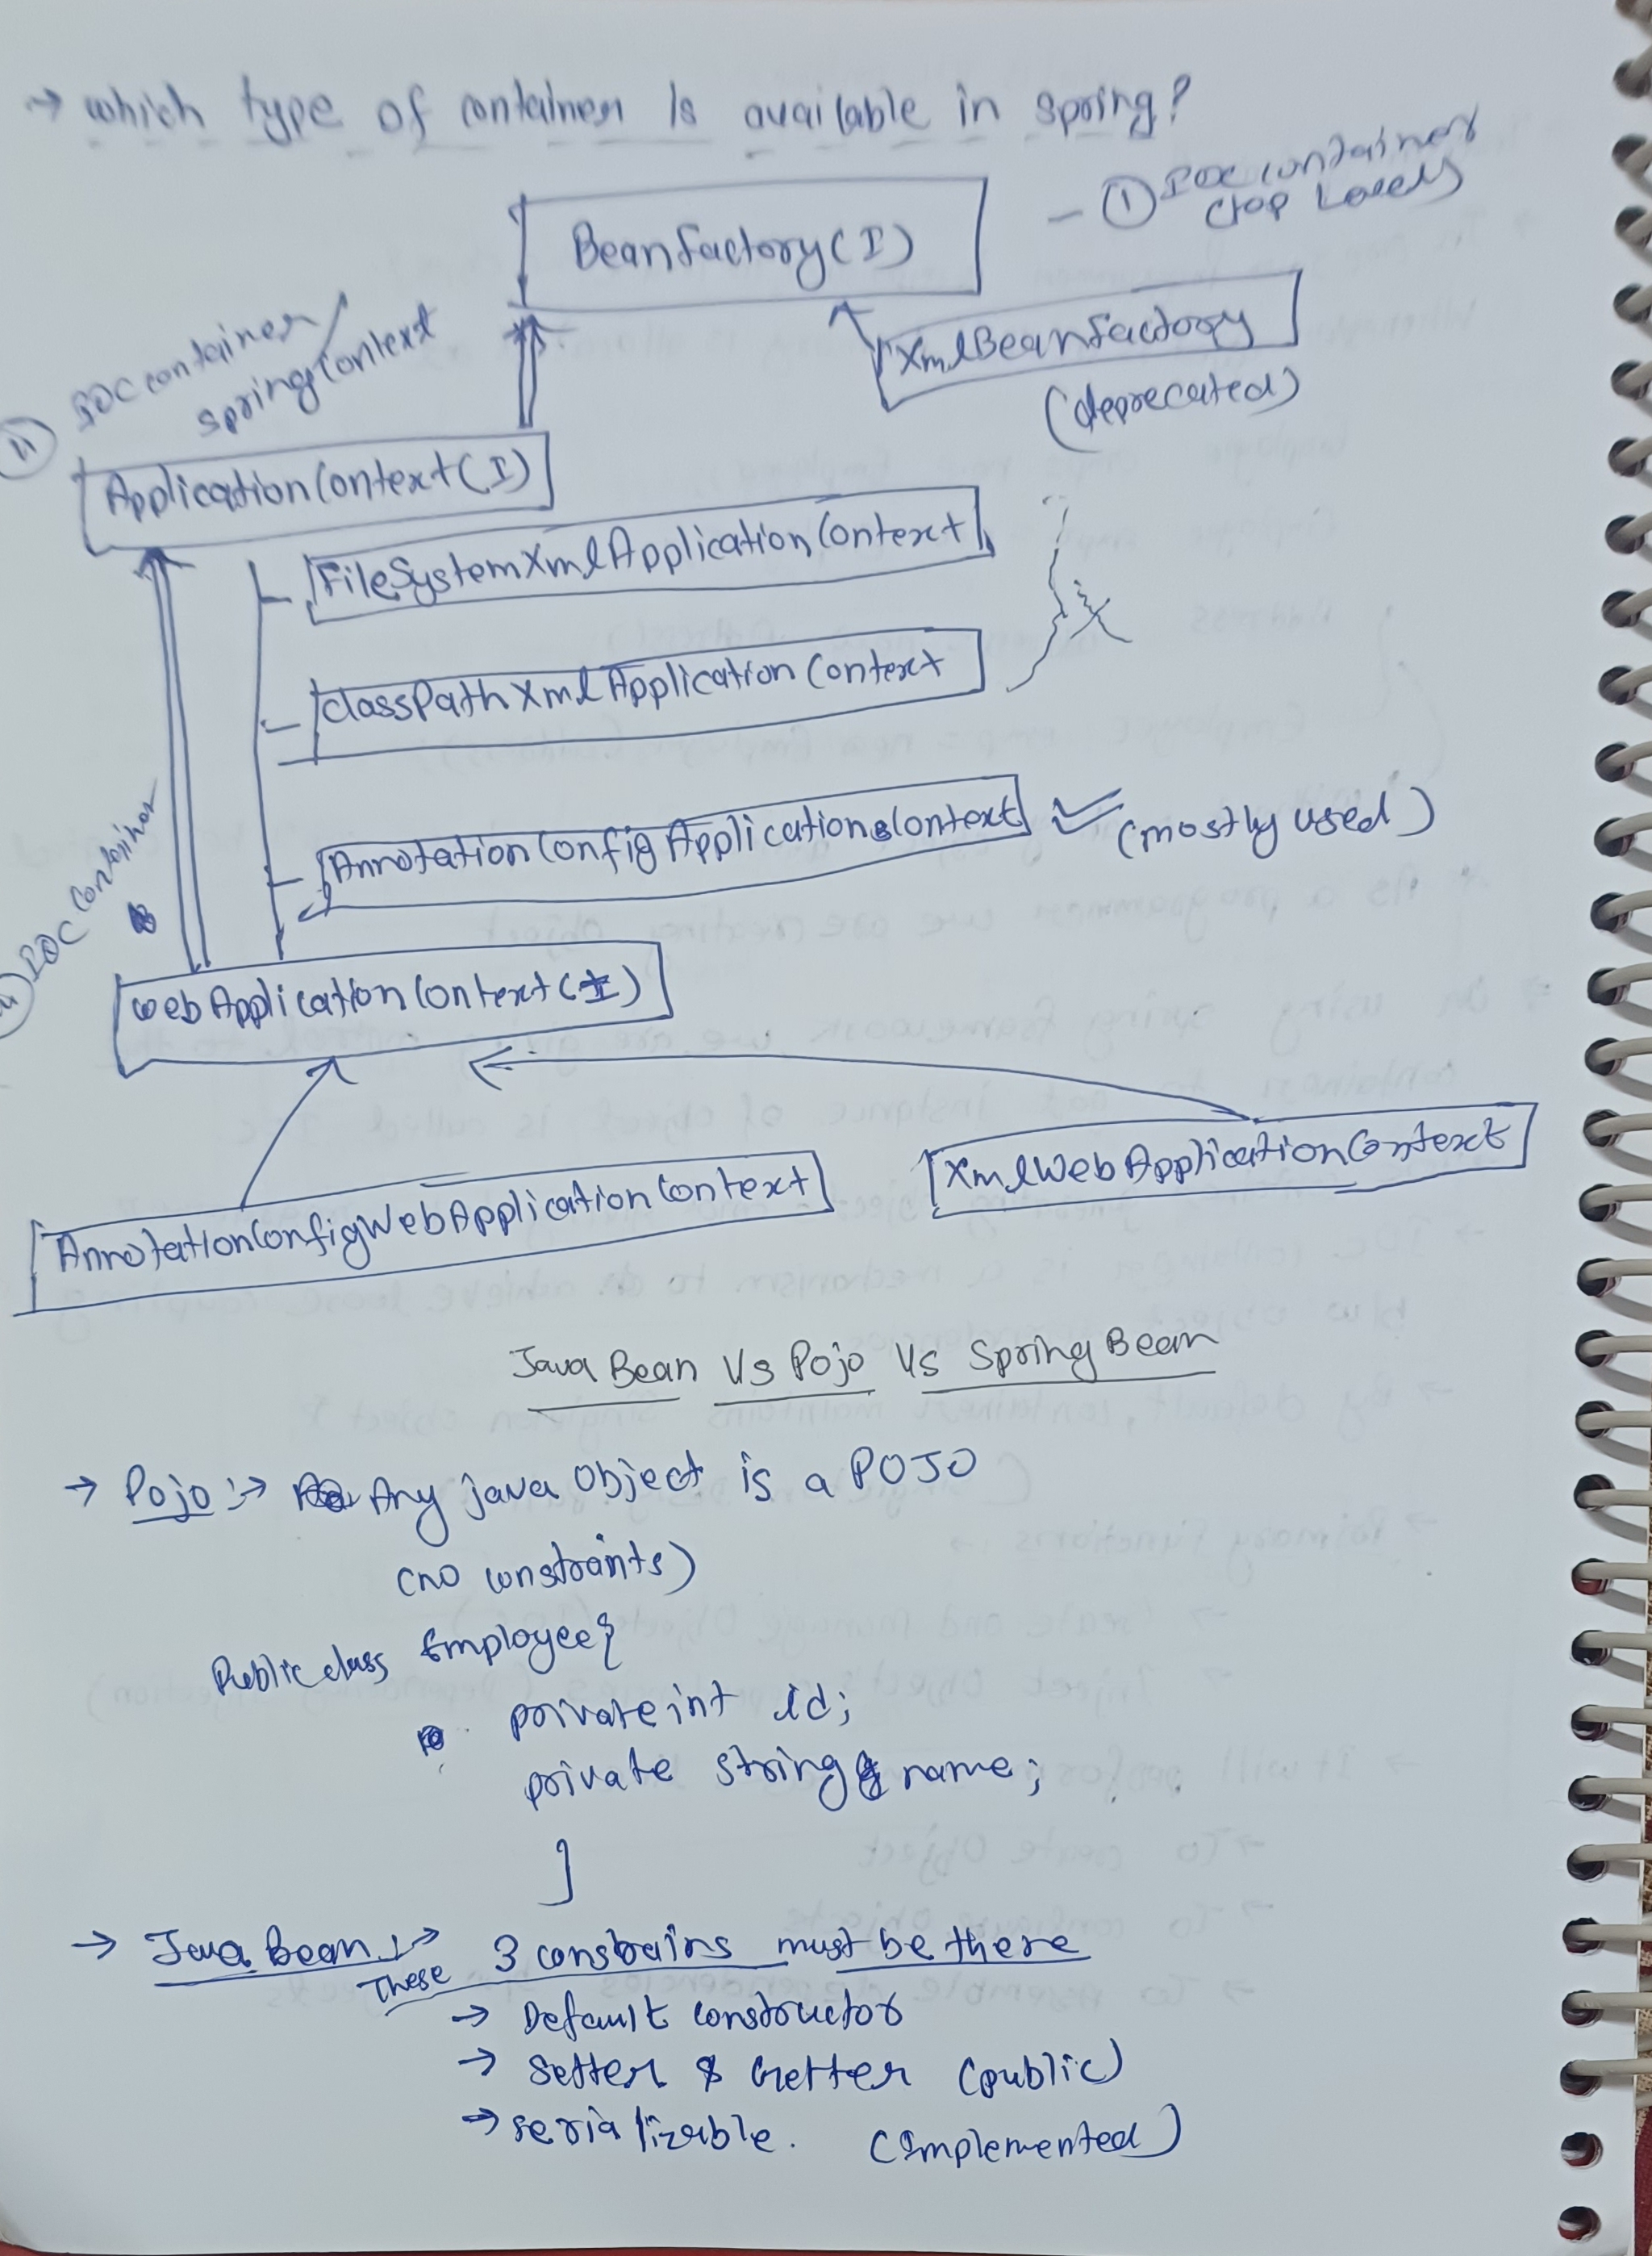 → which type of container Is available in spring?
BeanFactory(I)
- ① IOC container
(top Level)
XmlBeanFactory
(deprecated)
IOC container/
springContext
ApplicationContext(I)
FileSystemXmlApplicationContext
classPathXmlApplicationContext
AnnotationConfigApplicationContext (mostly used)
IOC Container
webApplicationContext(I)
XmlWebApplicationContext
AnnotationConfigWebApplicationContext
Java Bean Vs Pojo Vs Spring Bean
→ Pojo :→ Any java Object is a POJO
(no constraints)
Public class Employee{
private int id;
private string name;
}
→ Java Bean :→ 3 constrains must be there
These
→ Default constructor
→ setter & Getter (public)
→ serializable. (Implemented)